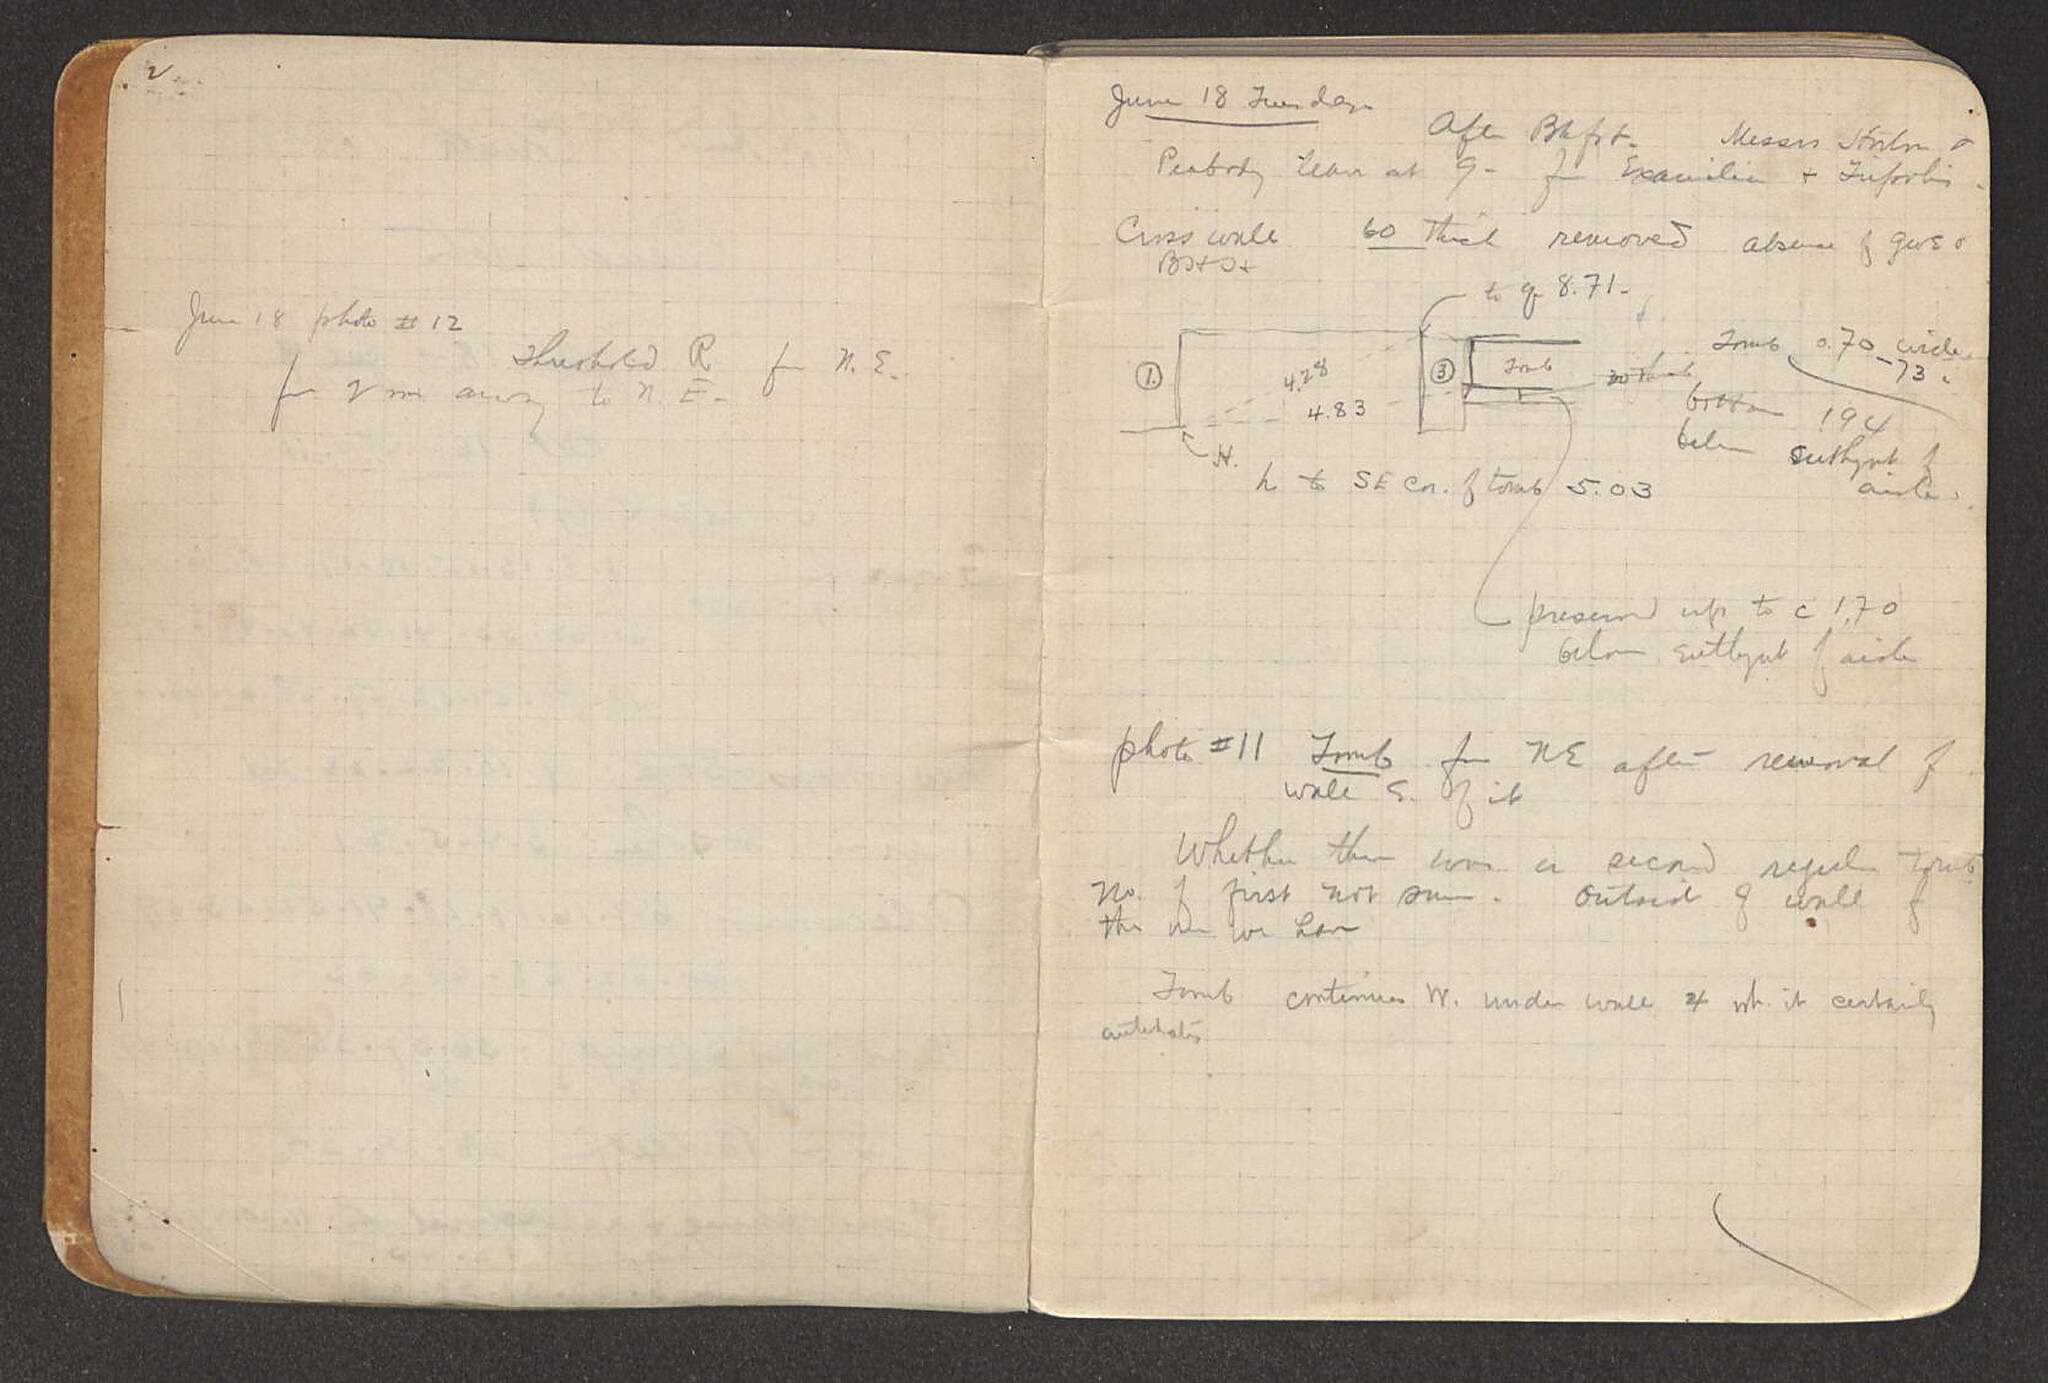 2
June 18 photo # 12
Threshold R fr N.E.
fr 2 m away to N.E.
June 18 Tuesday
After Bkfst. Messrs &
Peabody leave at 9 - for Examilia + Tripolis.
Cross wall 60 thick removed absence of
to 8.71-
1.
4.28
4.83
3
Tomb
30 thick
Tomb 0.70 wide
73
bottom 1.94
below euthynt of
aisle.
H.
h to SE cor. of tomb 5.03
preserved up to c 1.70
below euthynt of aisle
photo #11 Tomb fr NE after removal of
wall S. of it
Whether there was a second regular tomb
No. of first not sure. Outside of wall of
the one we have
Tomb continues W. under wall 4 wh. it certainly
antedates